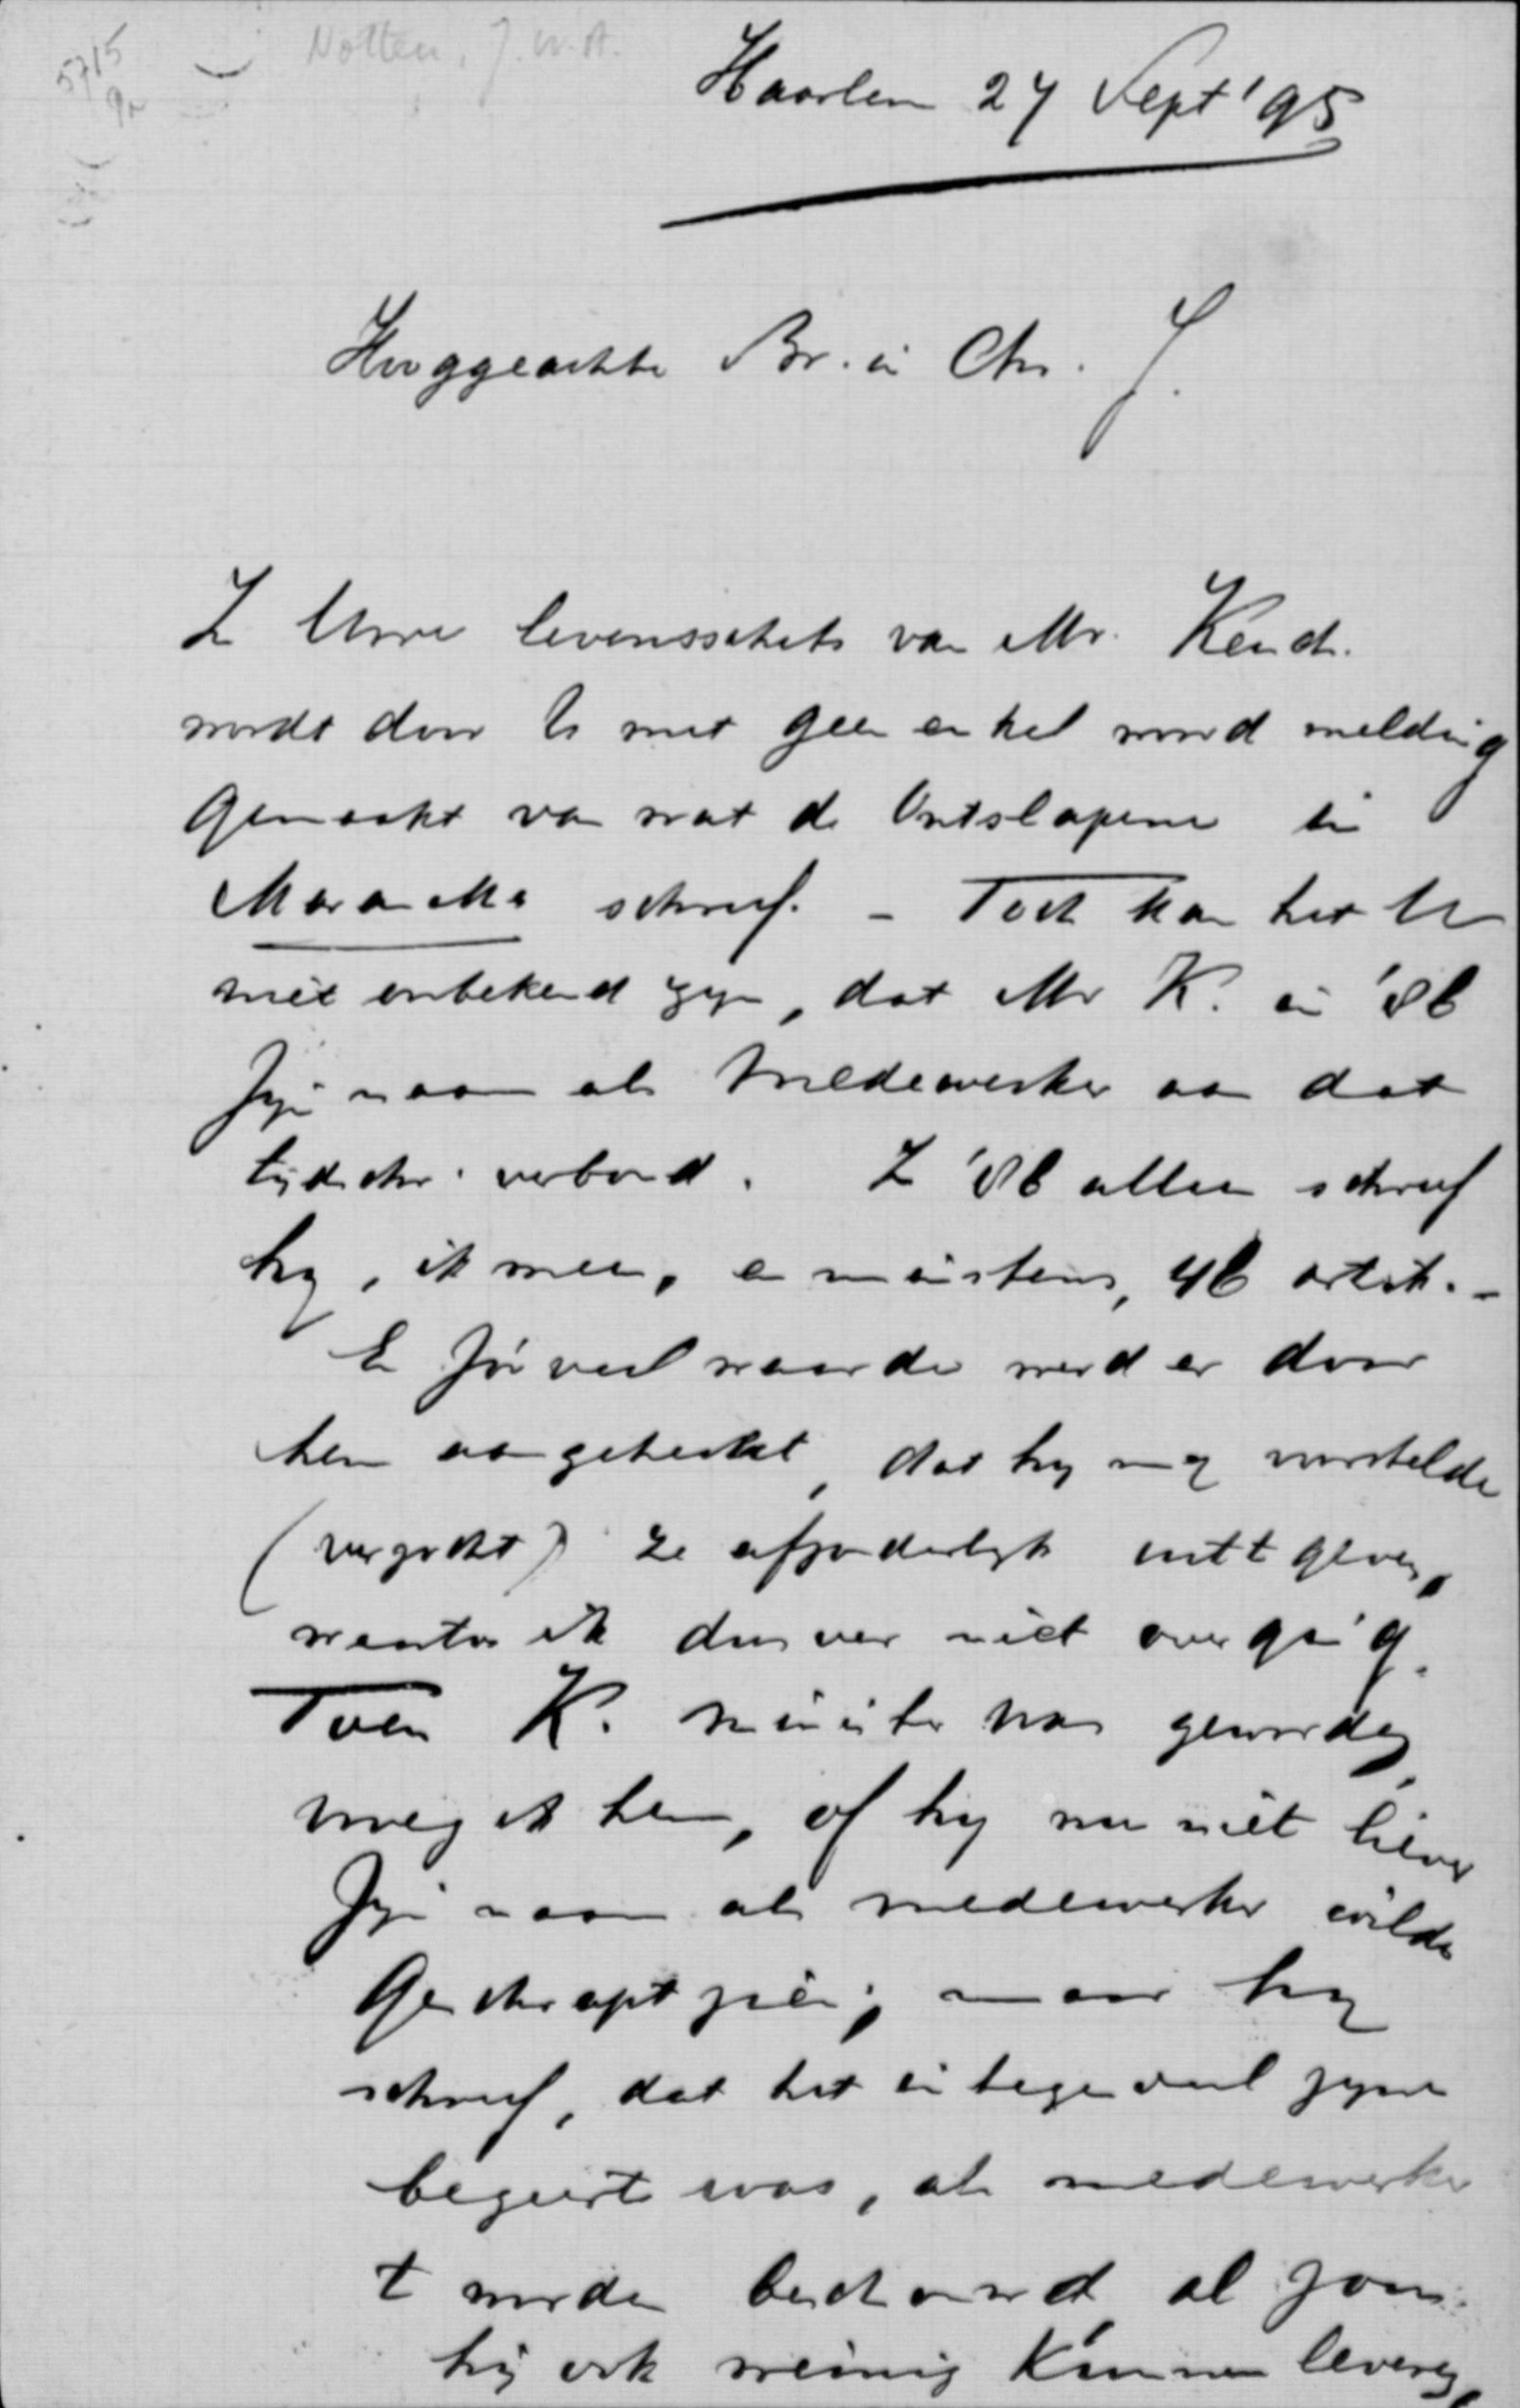 5715
Notten, J. W. A.
Haarlem 27 Sept '95
Hooggeachte Br. in Chr. J.
In Uwe levensschets van Mr. Keuch.
wordt door U met geen enkel woord melding
gemaakt van wat de Ontslapene in
Maranatha schreef. - Toch kan het U
niet onbekend zyn, dat Mr K. in '86
zyn naam als medewerker aan dat
tijdschr. verbond. In '86 alleen schreef
hy, ik meen, en minstens, 46 artik. -
En zóóveel waarde werd er door
hem aan gehecht, dat hy my voorstelde
(verzocht) ze afzonderlyk uit t geven,
waartoe ik dusver niet overging.
Toen K. minister was geworden,
vroeg ik hem, of hy nu niet liever
zyn naam als medewerker wilde
geschrapt zien; maar hy
schreef, dat het in tegendeel zyne
begeerte was, als medewerker
t worden beschouwd, al zou
hij ook weinig kunnen leveren,